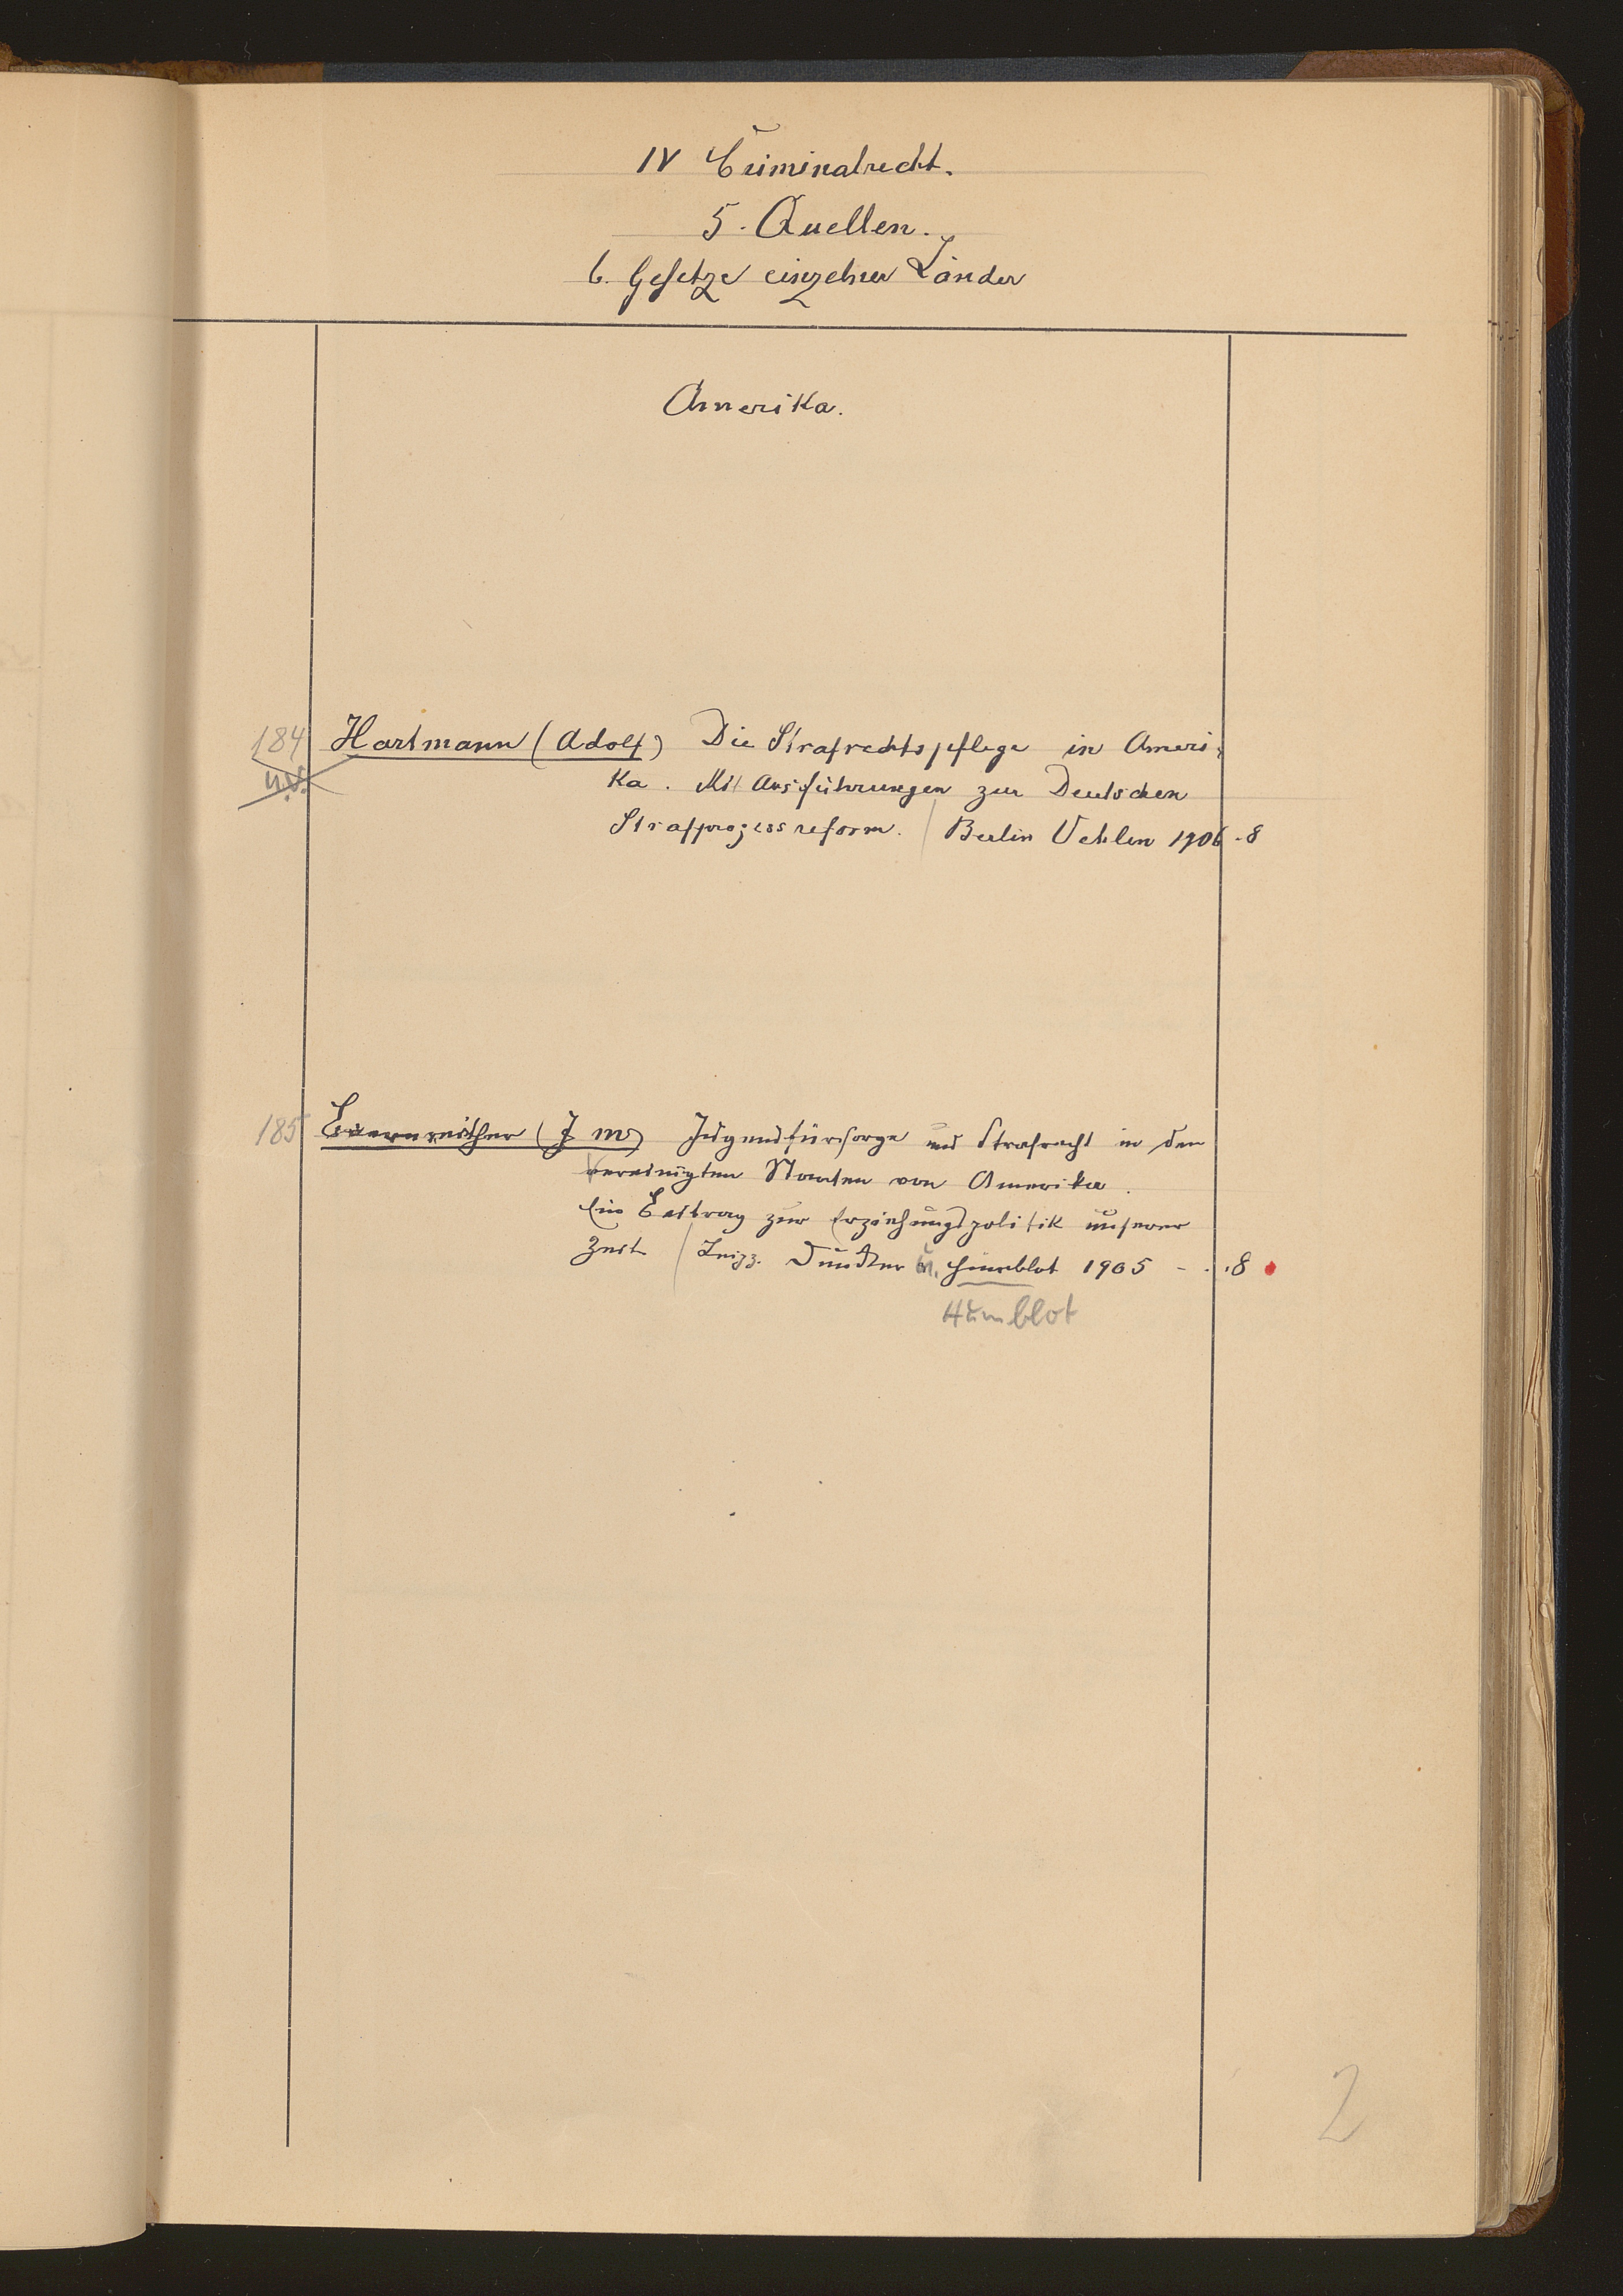 IV Criminalrecht.
5. Quellen.
b. Gesetze einzelner Länder
Amerika.
184 Hartmann (Adolf) Die Strafrechtspflege in Ameri-
n.v. ka. Mit Ausführungen zur Deutschen
Strafprozessreform. / Berlin Vehlen 1906 - 8
185 Baernreither (J M) Jugendfürsorge und Strafrecht in den
Vereinigten Staaten von Amerika.
Ein Beitrag zur Erziehungspolitik unserer
Zeit / Leipz. Duncker u. Humblot 1905 - . . 8
Humblot
2